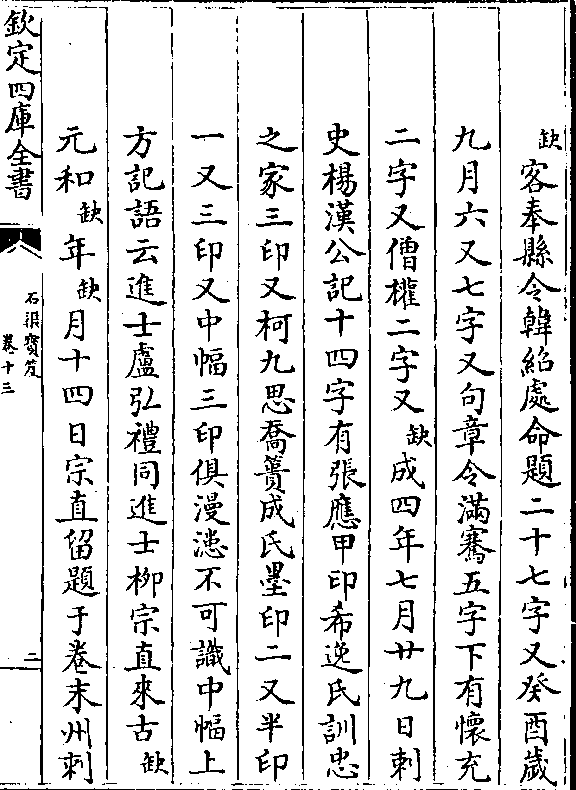 缺客奉縣令韓紹處命題二十七字又癸酉歲
九月六又七字又句章令滿騫五字下有懷充
二字又僧權二字又缺成四年七月廿九日刺
史楊漢公記十四字有張應甲印希逸氏訓忠
之家三印又柯九思喬簣成氏墨印二又半印
一又三印又中幅三印俱漫漶不可識中幅上
方記語云進士盧弘禮同進士柳宗直來古缺
元和缺年缺月十四日宗直留題于卷末州刺
欽定四庫全書
石渠寶笈
卷十三
二